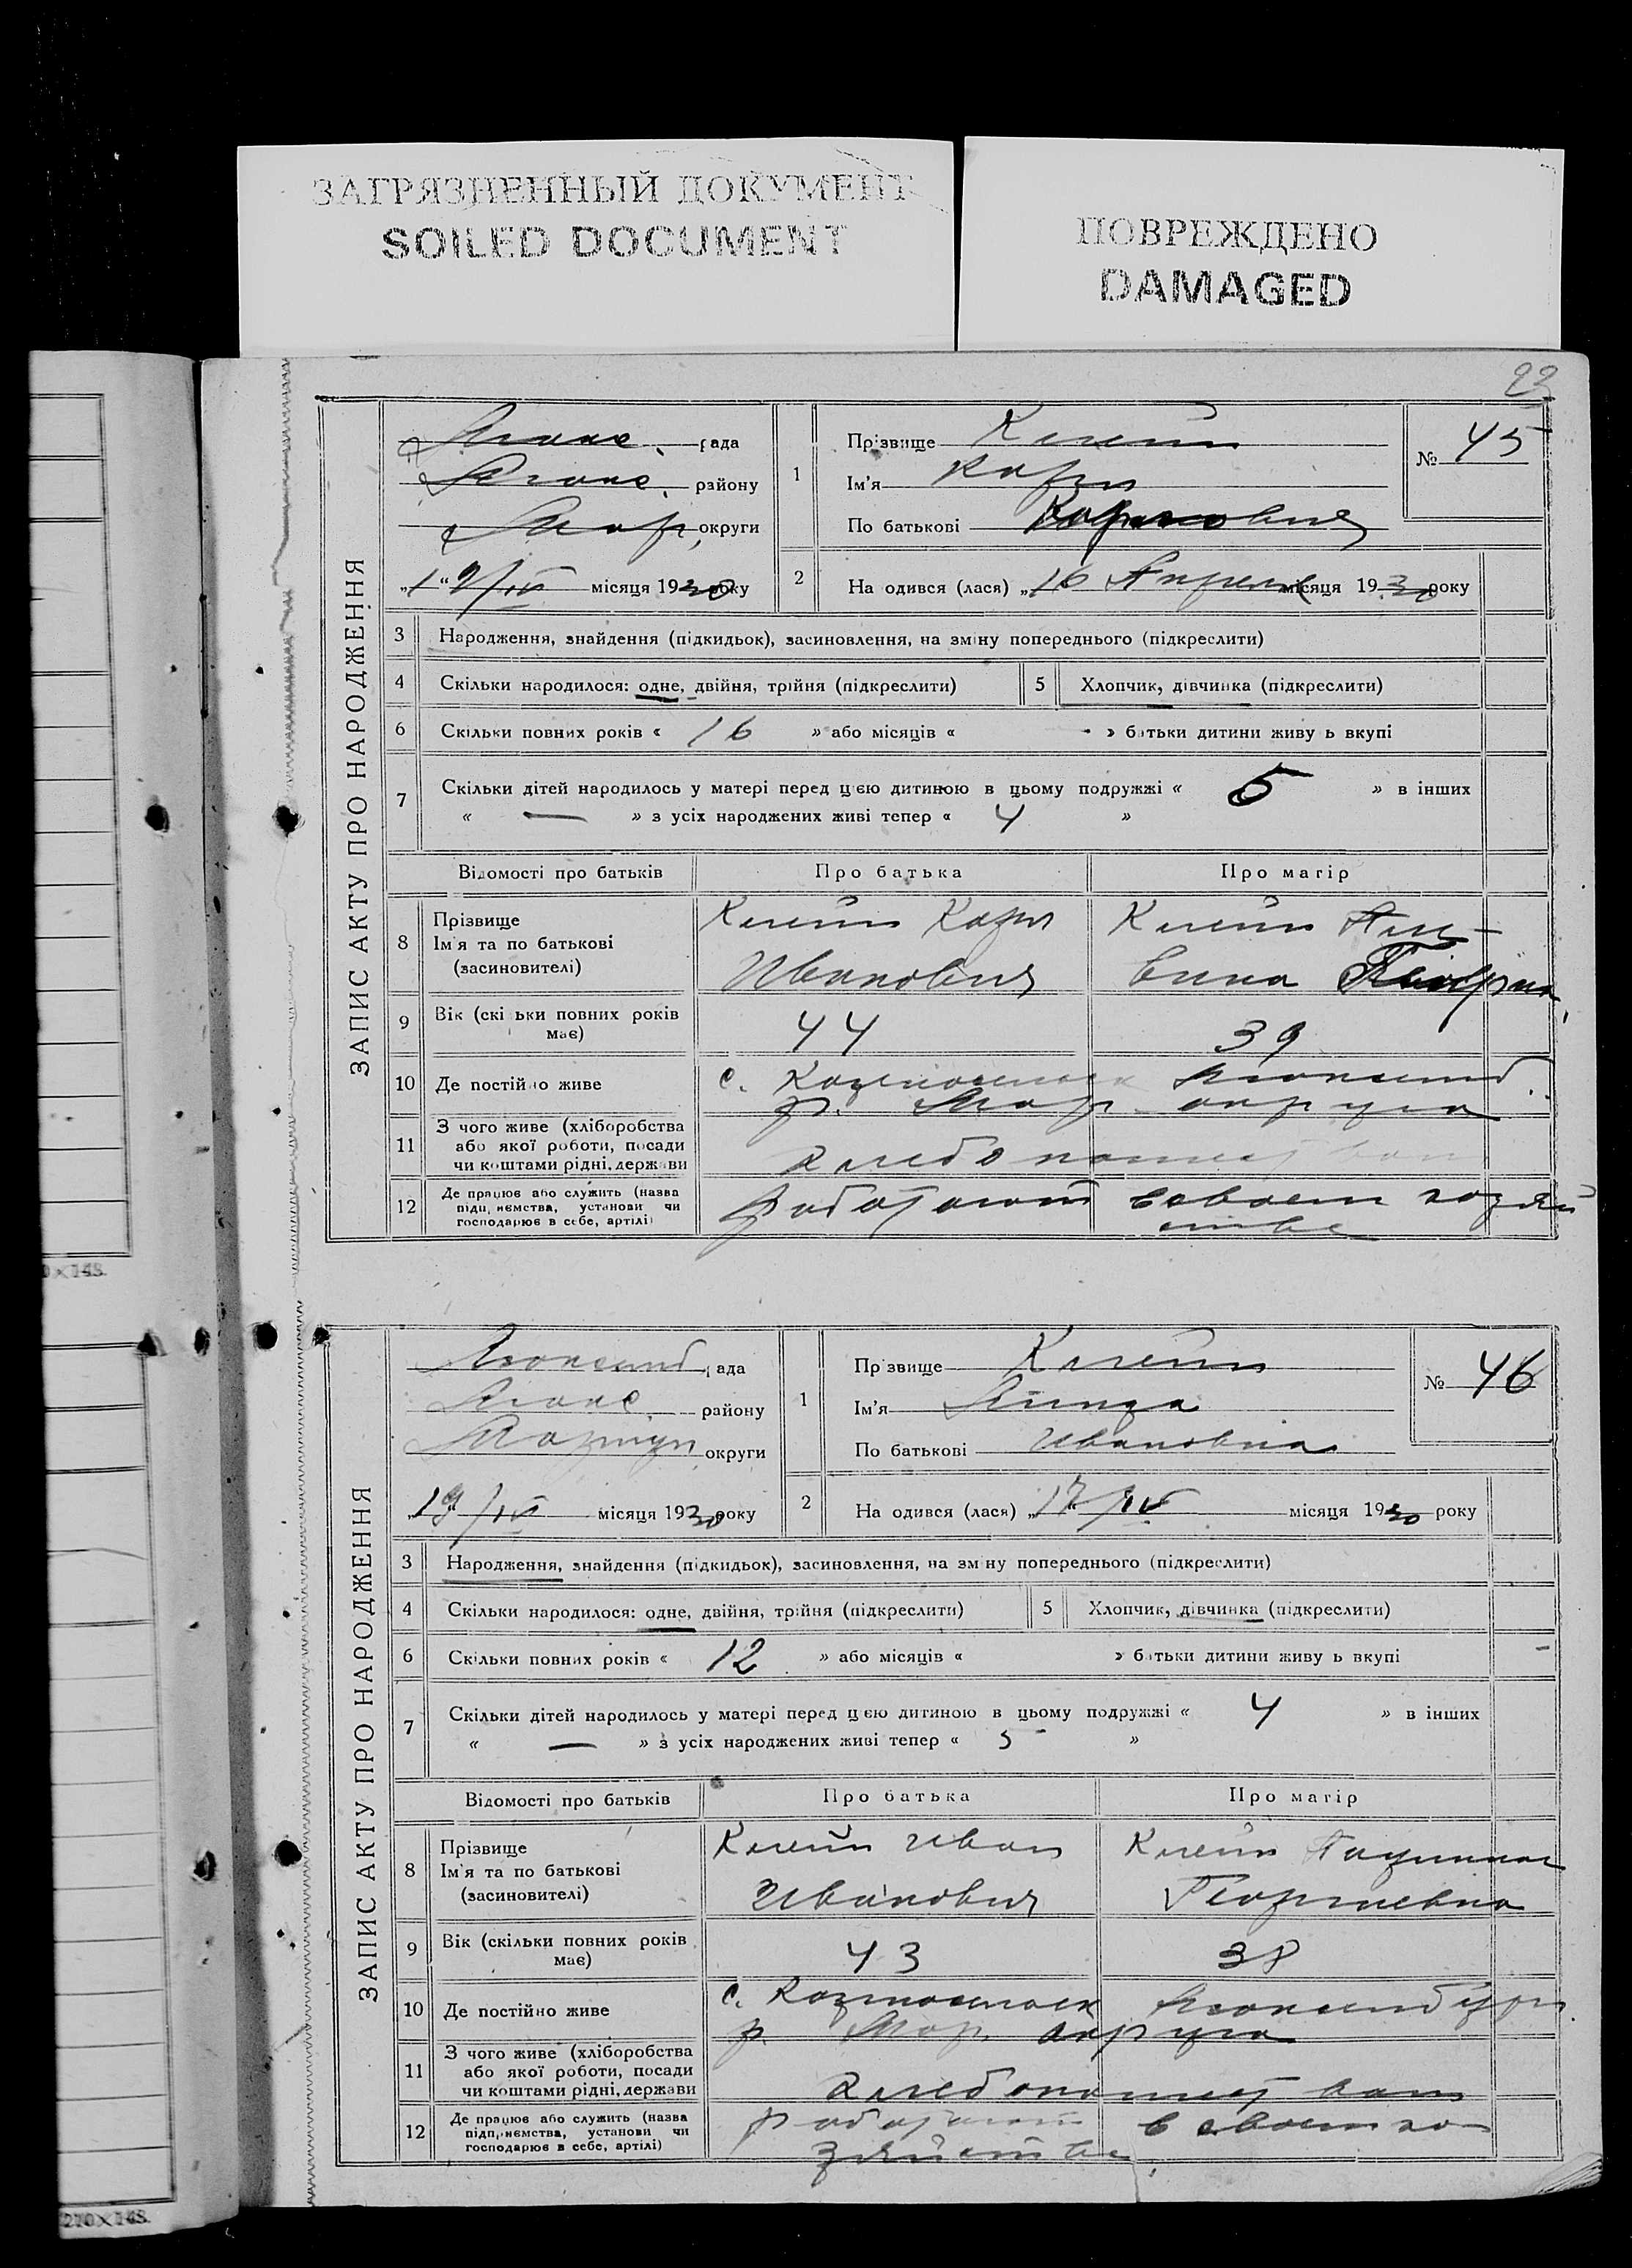 ЗАГРЯЗНЕННЫЙ ДОКУМЕНТ
SOILED DOCUMENT
ПОВРЕЖДЕНО
DAMAGED
23
ЗАПИС АКТУ ПРО НАРОДЖЕННЯ
Люкс. рада
Люкс. району
Мар. округи
„19/IV місяця 1930 року
1
Прізвище Клейн
Ім'я Карл
По батькові Карлович
№ 45
2 На одився (лася) „16 Апреля місяця 1930 року
3 Народження, знайдення (підкидьок), засиновлення, на зміну попереднього (підкреслити)
4 Скільки народилося: одне, двійня, трійня (підкреслити) 5 Хлопчик, дівчинка (підкреслити)
6 Скільки повних років « 16 » або місяців « - » батьки дитини живу ь вкупі
7 Скільки дітей народилось у матері перед цією дитиною в цьому подружжі « 5 » в інших
« — » з усіх народжених живі тепер « 4 »
Відомості про батьків Про батька Про матір
8 Прізвище
Ім'я та по батькові
(засиновителі)
Клейн Карл
Иванович
Клейн
9 Вік (скі ьки повних років
має) 44 39
10 Де постійно живе с.
р. Мар. округа
11 З чого живе (хліборобства
або якої роботи, посади
чи коштами рідні, держави
12 Де працює або служить (назва
підприємства, установи чи
господарює в себе, артілі)
работают в своем хозяй
стве
0×148.
ЗАПИС АКТУ ПРО НАРОДЖЕННЯ
Люксемб рада
Люкс. району
Мариуп округи
„19/IV місяця 1930 року
1
Пр звище Клейн
Ім'я Линда
По батькові Ивановна
№ 46
2 На одився (лася) „17/IV місяця 1930 року
3 Народження, знайдення (підкидьок), засиновлення, на зміну попереднього (підкреслити)
4 Скільки народилося: одне, двійня, трійня (підкреслити) 5 Хлопчик, дівчинка (підкреслити)
6 Скільки повних років « 12 » або місяців « » батьки дитини живу ь вкупі
7 Скільки дітей народилось у матері перед цією дитиною в цьому подружжі « 4 » в інших
« — » з усіх народжених живі тепер « 5 »
Відомості про батьків Про батька Про матір
8 Прізвище
Ім'я та по батькові
(засиновителі)
Клейн Иван
Иванович
Клейн Паулина
Георгиевна
9 Вік (скільки повних років
має) 43 38
10 Де постійно живе с. Люксембург
р. Мар. округа
11 З чого живе (хліборобства
або якої роботи, посади
чи коштами рідні, держави
12 Де працює або служить (назва
підприємства, установи чи
господарює в себе, артілі)
работают в своем хо
зяйстве
210×148.